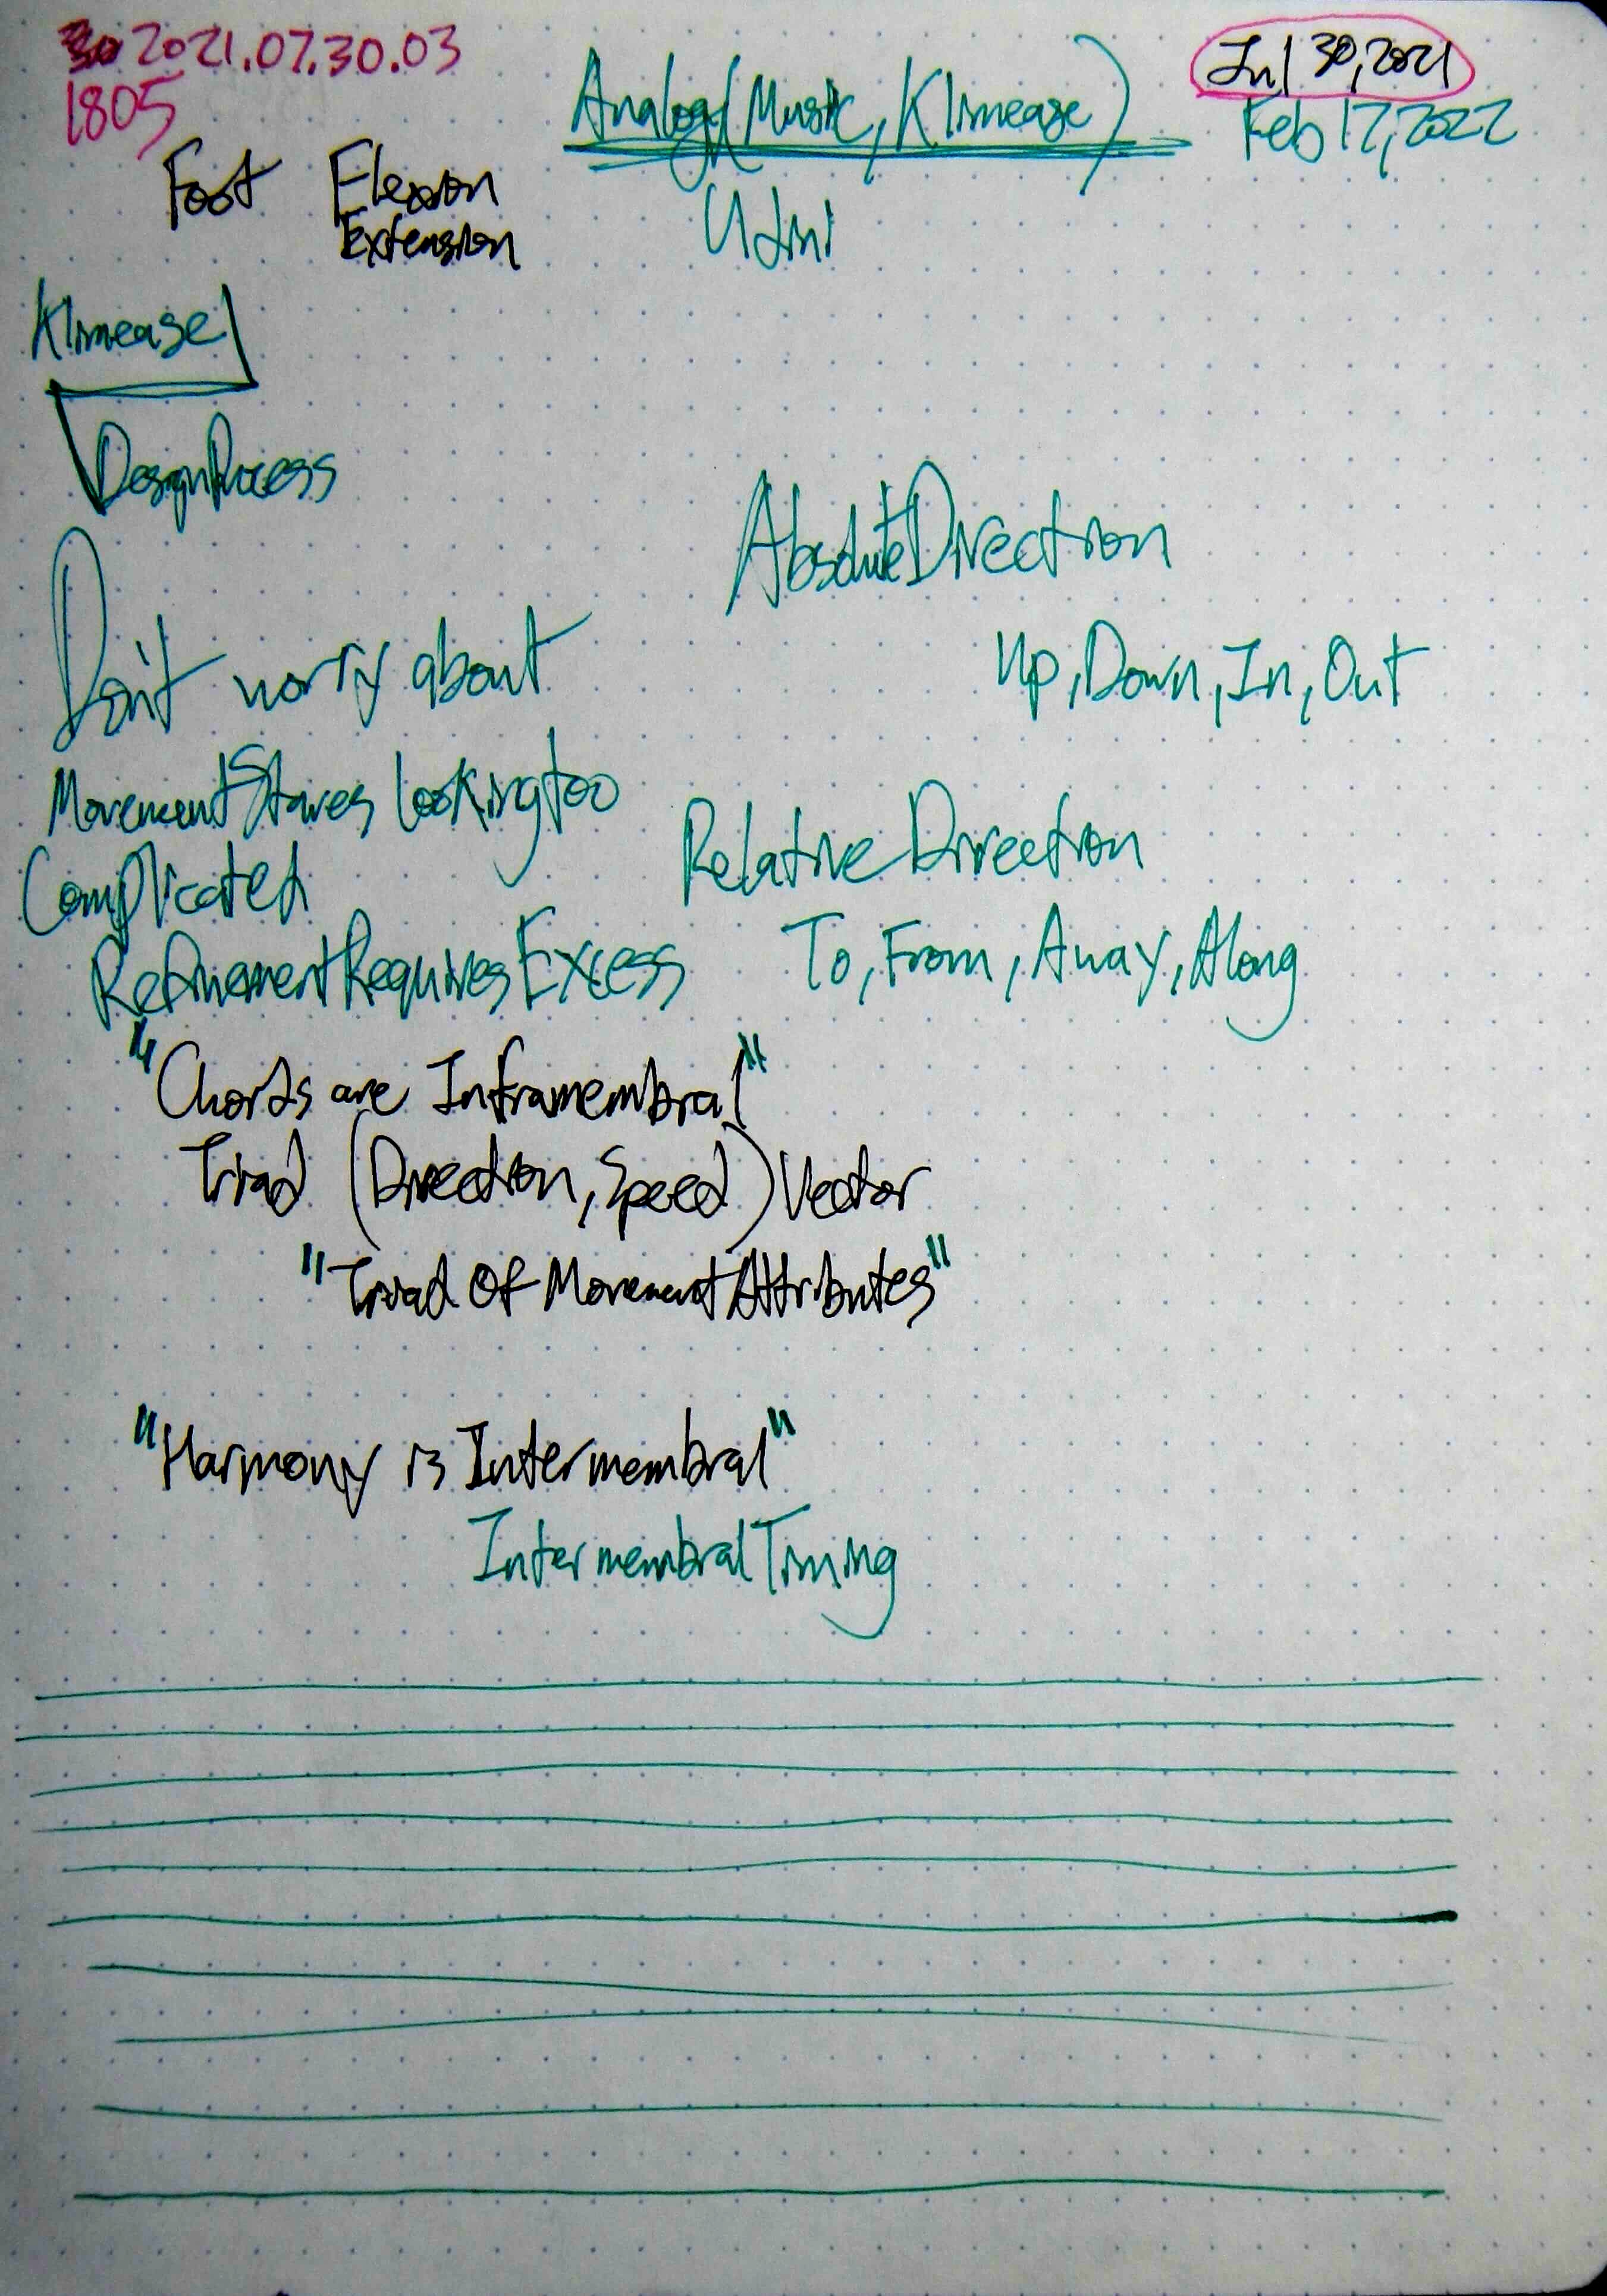 2021.07.30.03
1805
Analog(Music, Klimease)
Jul 30, 2021
Feb 17, 2022
Foot Flexion
Extension
Klimease
DesignProcess
AbsoluteDirection
Up, Down, In, Out
Don't worry about
MovementStaves looking too
Complicated
RefinementRequiresExcess
RelativeDirection
To, From, Away, Along
"Chords are Inframembral"
Triad (Direction, Speed) Vector
"Triad Of MovementAttributes"
"Harmony is Intermembral"
IntermembralTiming